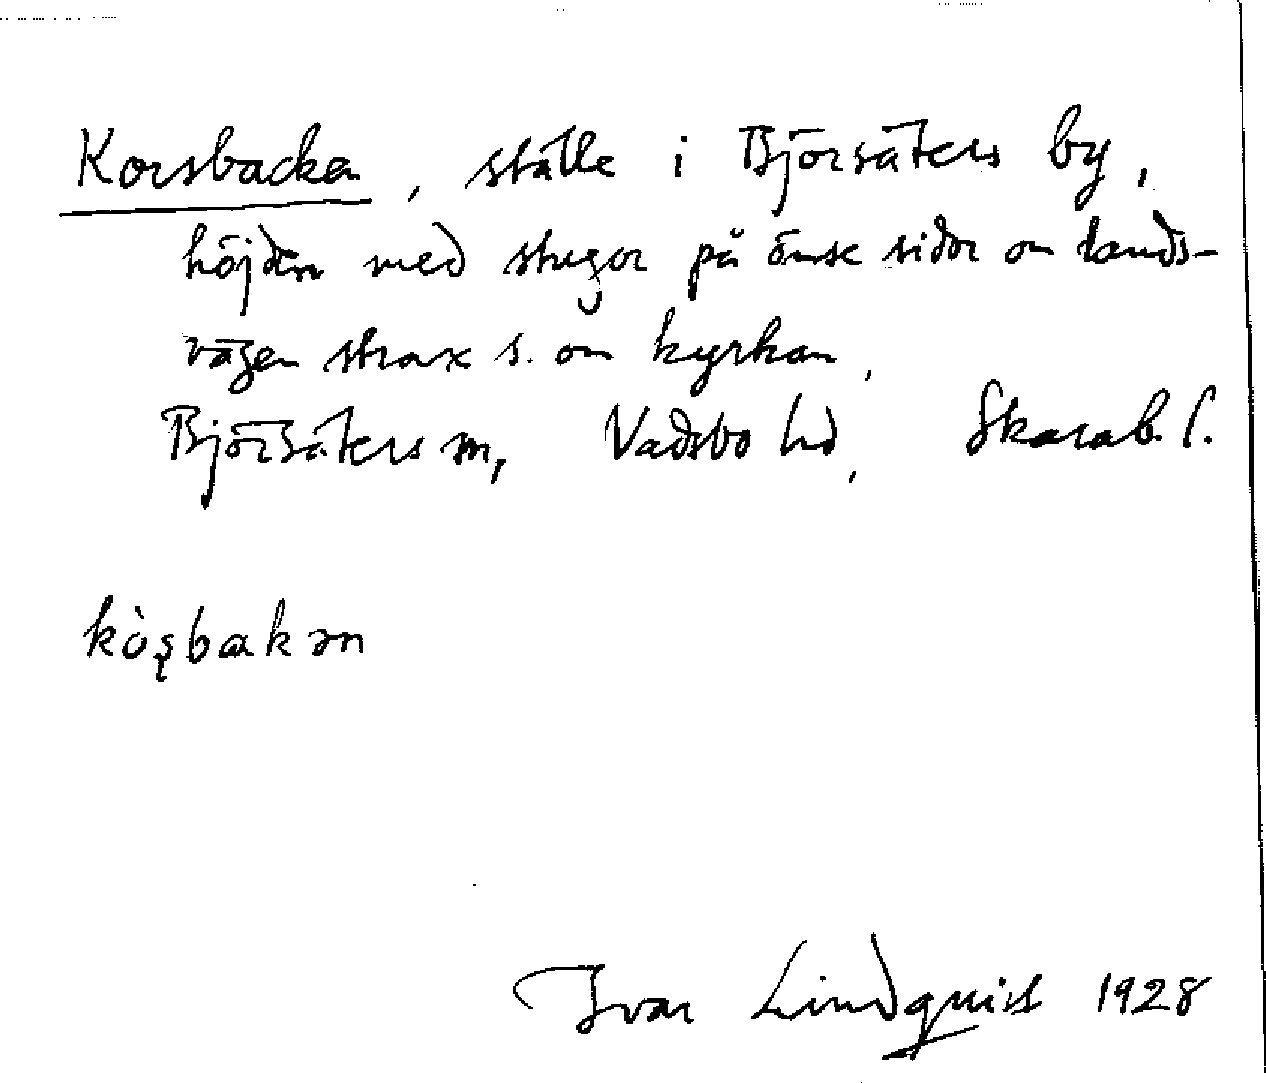 Korsbacken, ställe i Björsäters by,
höjden med stugor på ömse sidor om lands-
vägen strax s. om kyrkan,
Björsäters sn, Vadsbo hd, Skarab. l.
kòʂbakən
Ivar Lindquist 1928